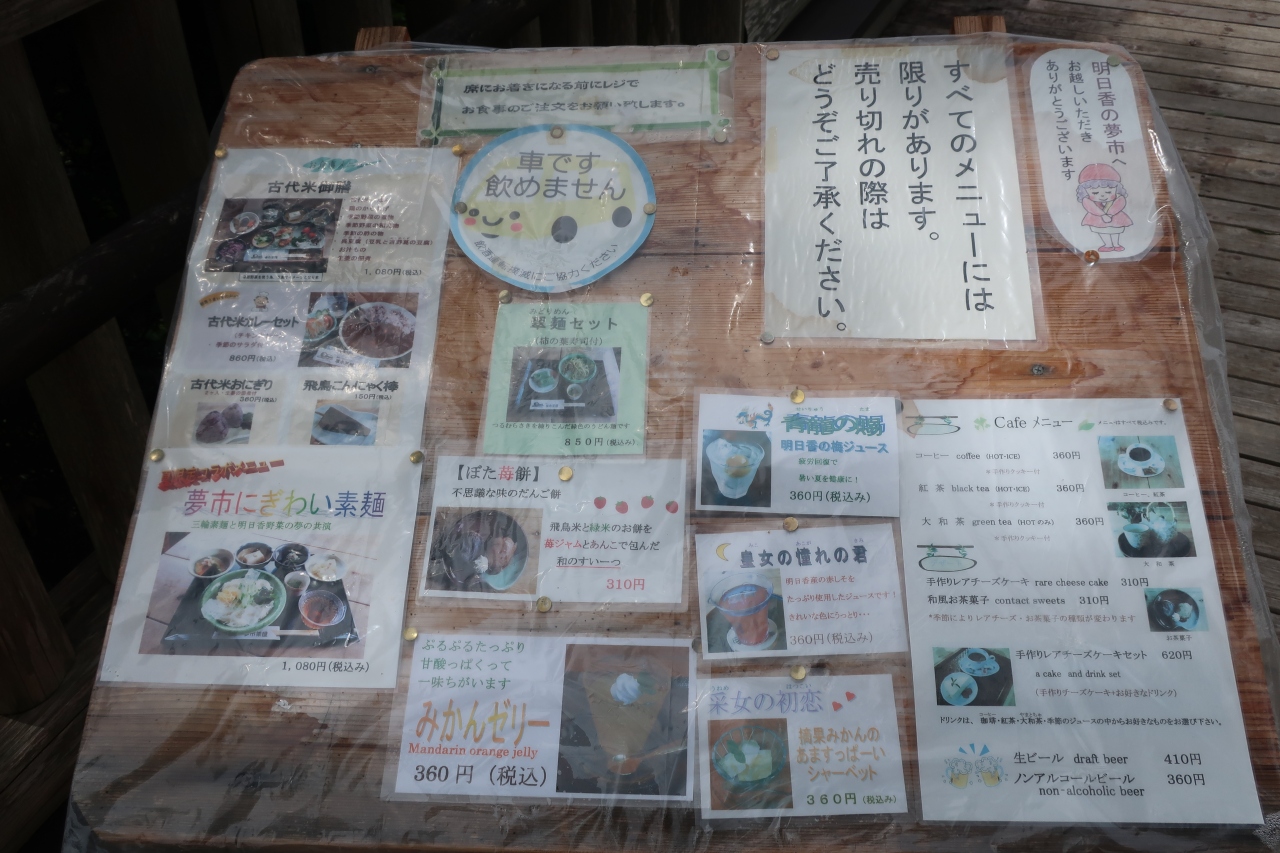 席にお着きになる前にレジで
お食事のご注文をお願い致します。
車です
飲めません
飲酒運転撲滅にご協力ください
すべてのメニューには
限りがあります。
売り切れの際は
どうぞご了承ください。
明日香の夢市へ
お越しいただき
ありがとうございます
古代米御膳
1,080円(税込)
古代米カレーセット
860円(税込)
古代米おにぎり
飛鳥にんにく棒
夢市にぎわい素麺
三輪素麺と明日香野菜の夢の共演
1,080円(税込み)
みどりめん
麺セット
(柿の葉寿司付)
850円(税込み)
【ぼた苺餅】
不思議な味のだんご餅
飛鳥米と緑米のお餅を
苺ジャムとあんこで包んだ
和のすいーつ
310円
ぷるぷるたっぷり
甘酸っぱくって
一味ちがいます
みかんゼリー
Mandarin orange jelly
360円(税込)
青龍の賜
明日香の梅ジュース
疲労回復で
暑い夏を健康に!
360円(税込み)
皇女の憧れの君
明日香産の赤しそを
たっぷり使用したジュースです!
きれいな色にうっとり・・・
360円(税込み)
采女の初恋
摘果みかんの
あまずっぱーい
シャーベット
360円(税込み)
Cafe メニュー
メニューはすべて税込みです。
コーヒー coffee (HOT・ICE) 360円
※手作りクッキー付
紅茶 black tea (HOT・ICE) 360円
※手作りクッキー付
大和茶 green tea (HOTのみ) 360円
※手作りクッキー付
コーヒー、紅茶
大和茶
手作りレアチーズケーキ rare cheese cake 310円
和風お茶菓子 contact sweets 310円
*季節によりレアチーズ・お茶菓子の種類が変わります
お茶菓子
手作りレアチーズケーキセット 620円
a cake and drink set
(手作りチーズケーキ+お好きなドリンク)
ドリンクは、珈琲・紅茶・大和茶・季節のジュースの中からお好きなものをお選び下さい。
生ビール draft beer 410円
ノンアルコールビール 360円
non-alcoholic beer